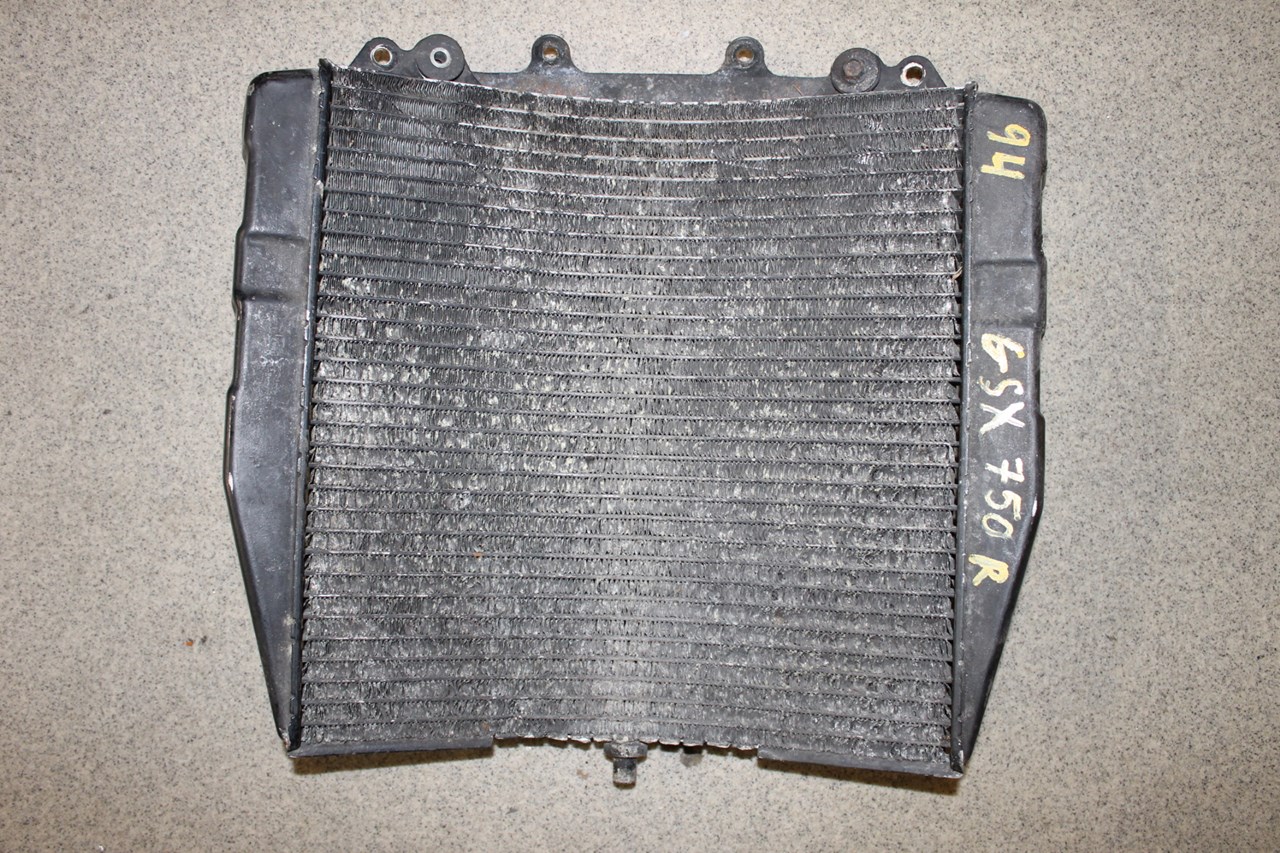 94 GSX 750 R